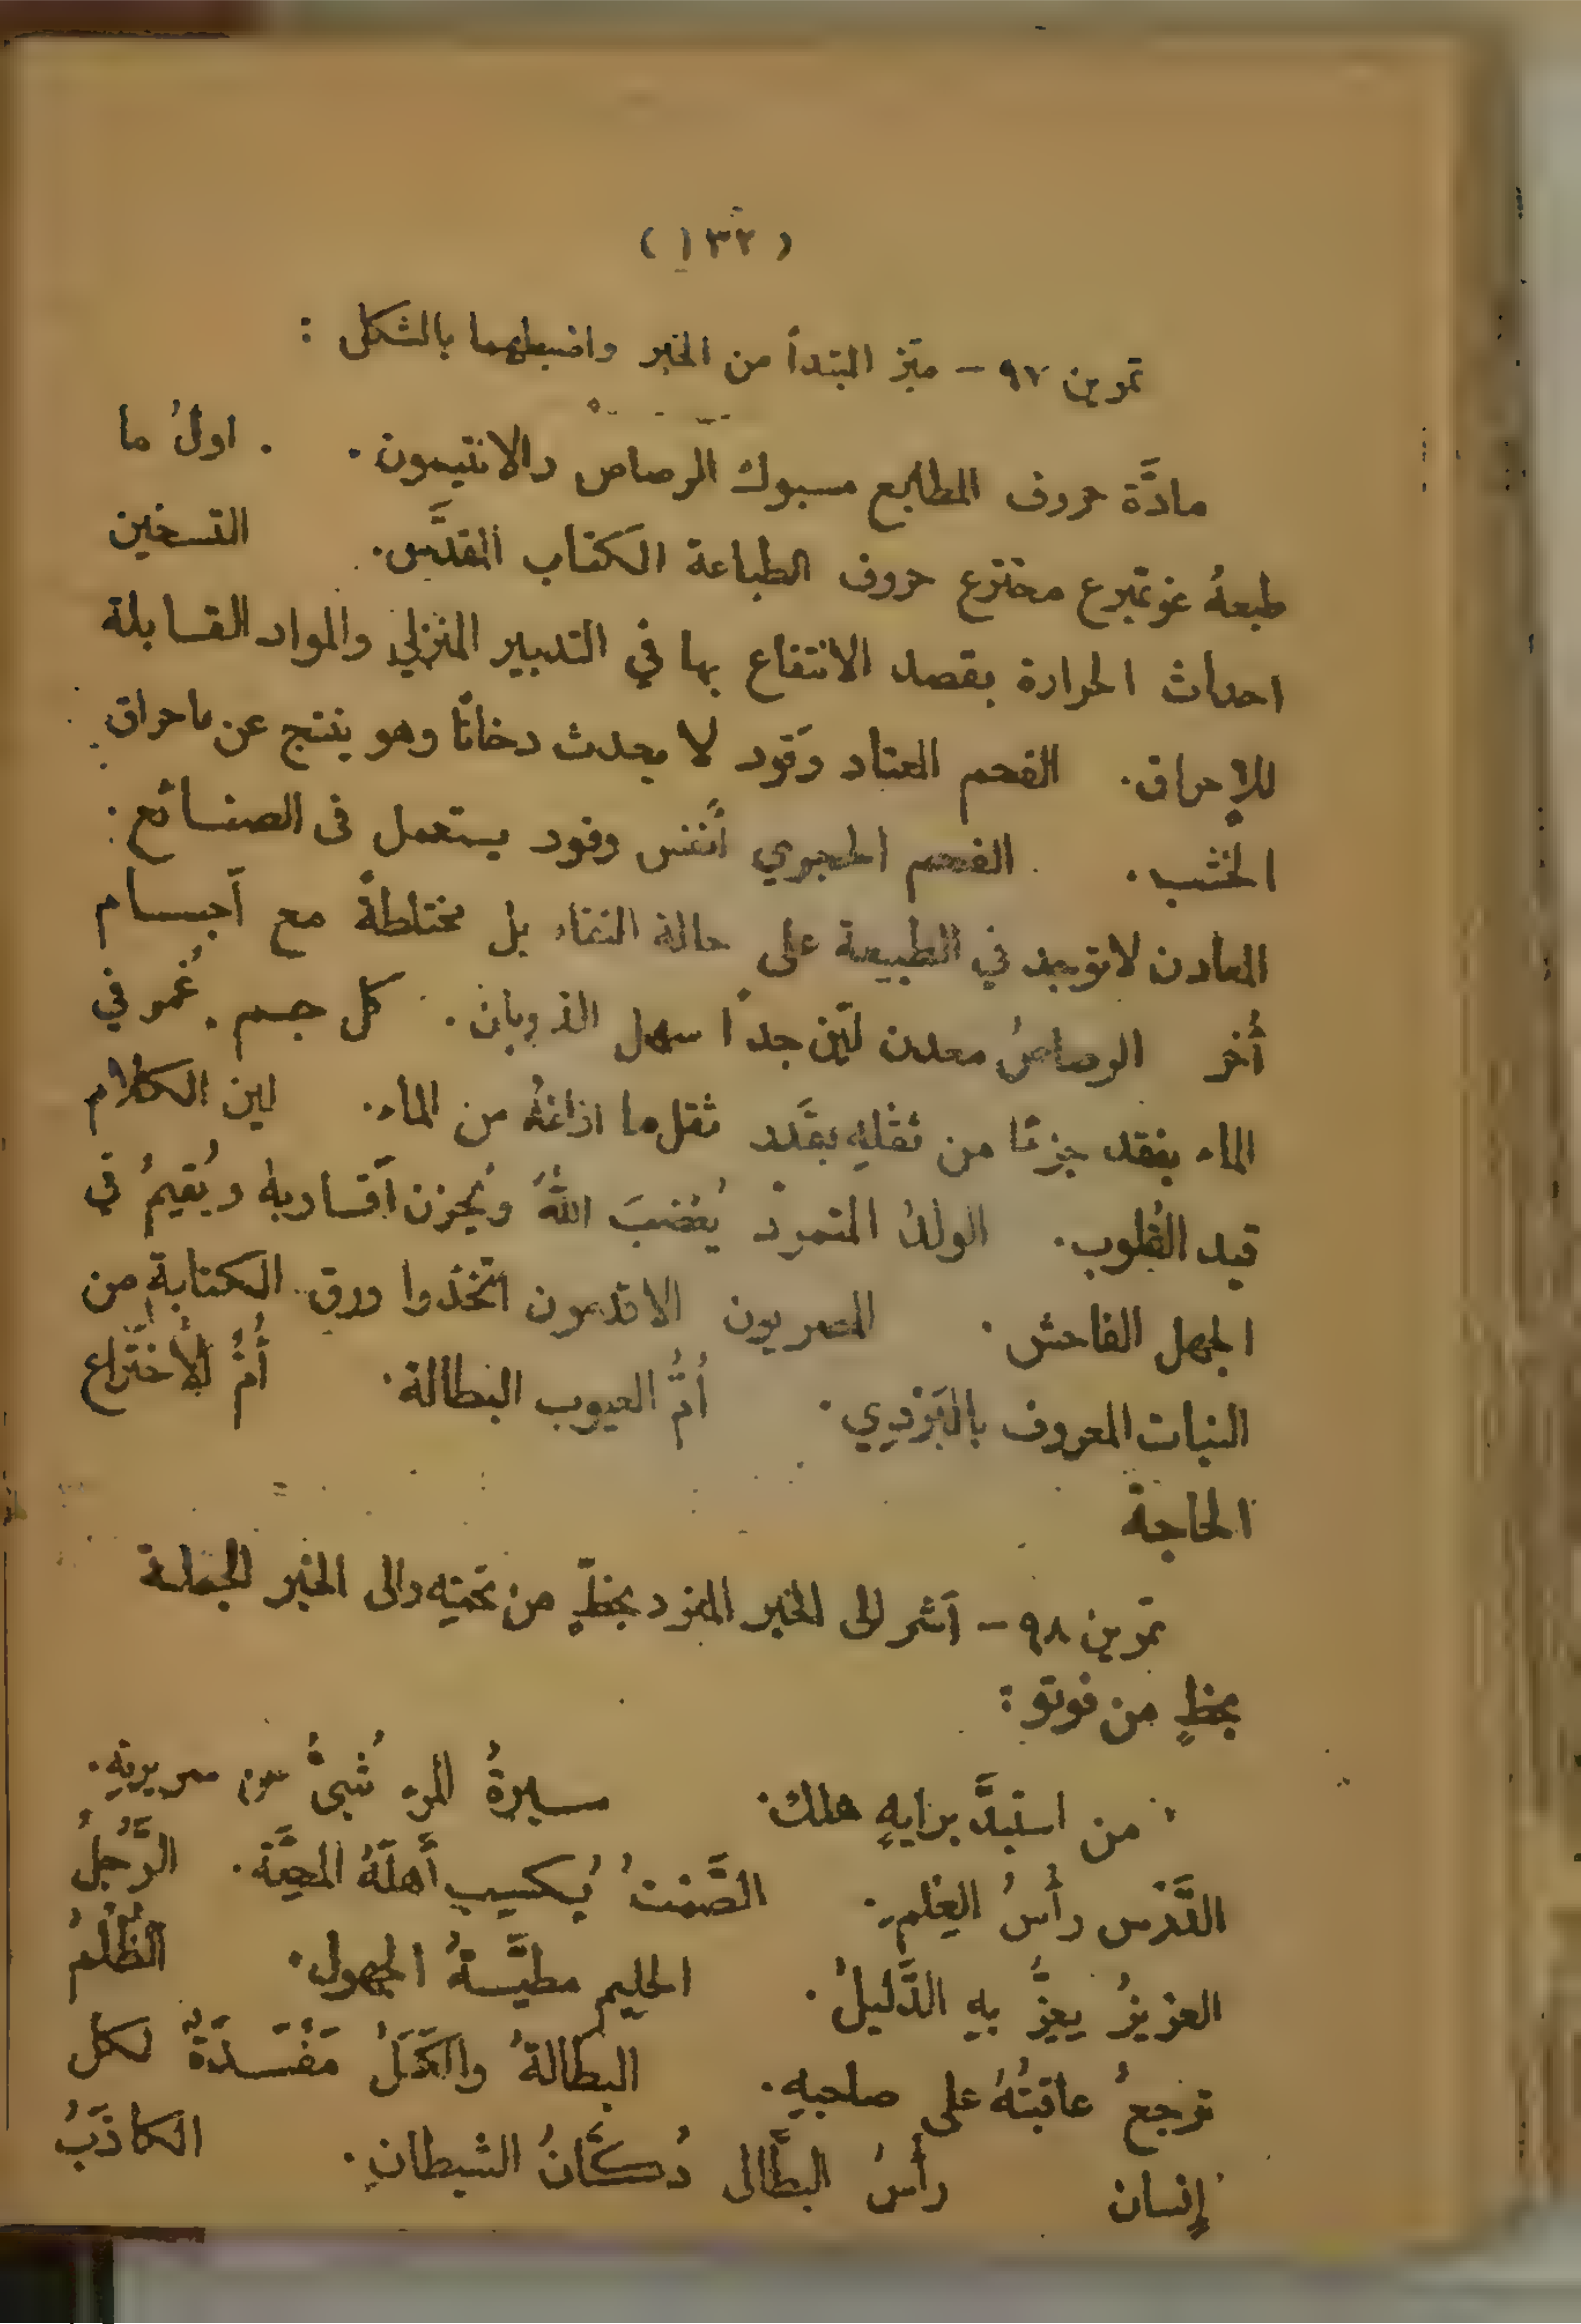 (١٣٢)
تمرين ٩٧ – ميّز المبتدأ من الخبر واضبطهما بالشكل :
مادَّة حروف المطابع مسبوك الرصاص والانتيمون. اولُ ما
طبعهُ غوتمبرع مخترع حروف الطباعة الكتاب المقدَّس. التسخين
احداث الحرارة بقصد الانتفاع بها في التدبير المنزلي والمواد القابلة
للإحراق. الفحم المعتاد وَقود لا يحدث دخانًا وهو ينتج عن احراق
الخشب. الفحم الحجري أَنفس وقود يستعمل في الصنائع.
المعادن لا توجد في الطبيعة على حالة النقاء بل مختلطةً مع أَجسام
أُخر الرصاصُ معدن ليّن جدًا سهل الذوبان. كل جسم غُمر في
الماء يفقد جزءًا من ثقلهِ بقَدر ثقل ما ازاغهُ من الماء. لين الكلام
قيد القُلوب. الولدُ المتمردُ يُغضبَ اللهَ ويُحزن أَقاربهُ ويُقيمُ في
الجهل الفاحش. المصريون الاقدمون اتخذوا ورق الكتابةِ من
النبات المعروف بالبَرْدِي. أُمُّ العيوب البطالة. أُمُّ الأِختراع
الحاجة
تمرين ٩٨ – أَشر الى الخبر المفرد بخطٍّ من تحتهِ والى الخبر الجملة
بخطٍ من فوقو :
من استبدَّ برايهِ هلك. سيرةُ المرء تُنبئُ عن سريرتهِ.
الدَّرْس رأْسُ العِلم. الصَّمْتُ يُكسِب أَهلَهُ المحبَّة. الرَّجُلُ
العزيزُ يعِزُّ بهِ الذَّليلُ. الحليم مطيَّةُ الجهول. الظُّلْمُ
ترجعُ عاقبتُهُ على صاحبهِ. البطالةُ والكَسَلُ مَفْسَدَةٌ لكل
إِنسان رأْسُ البطَّال دُكَّانُ الشيطان. الكاذبُ